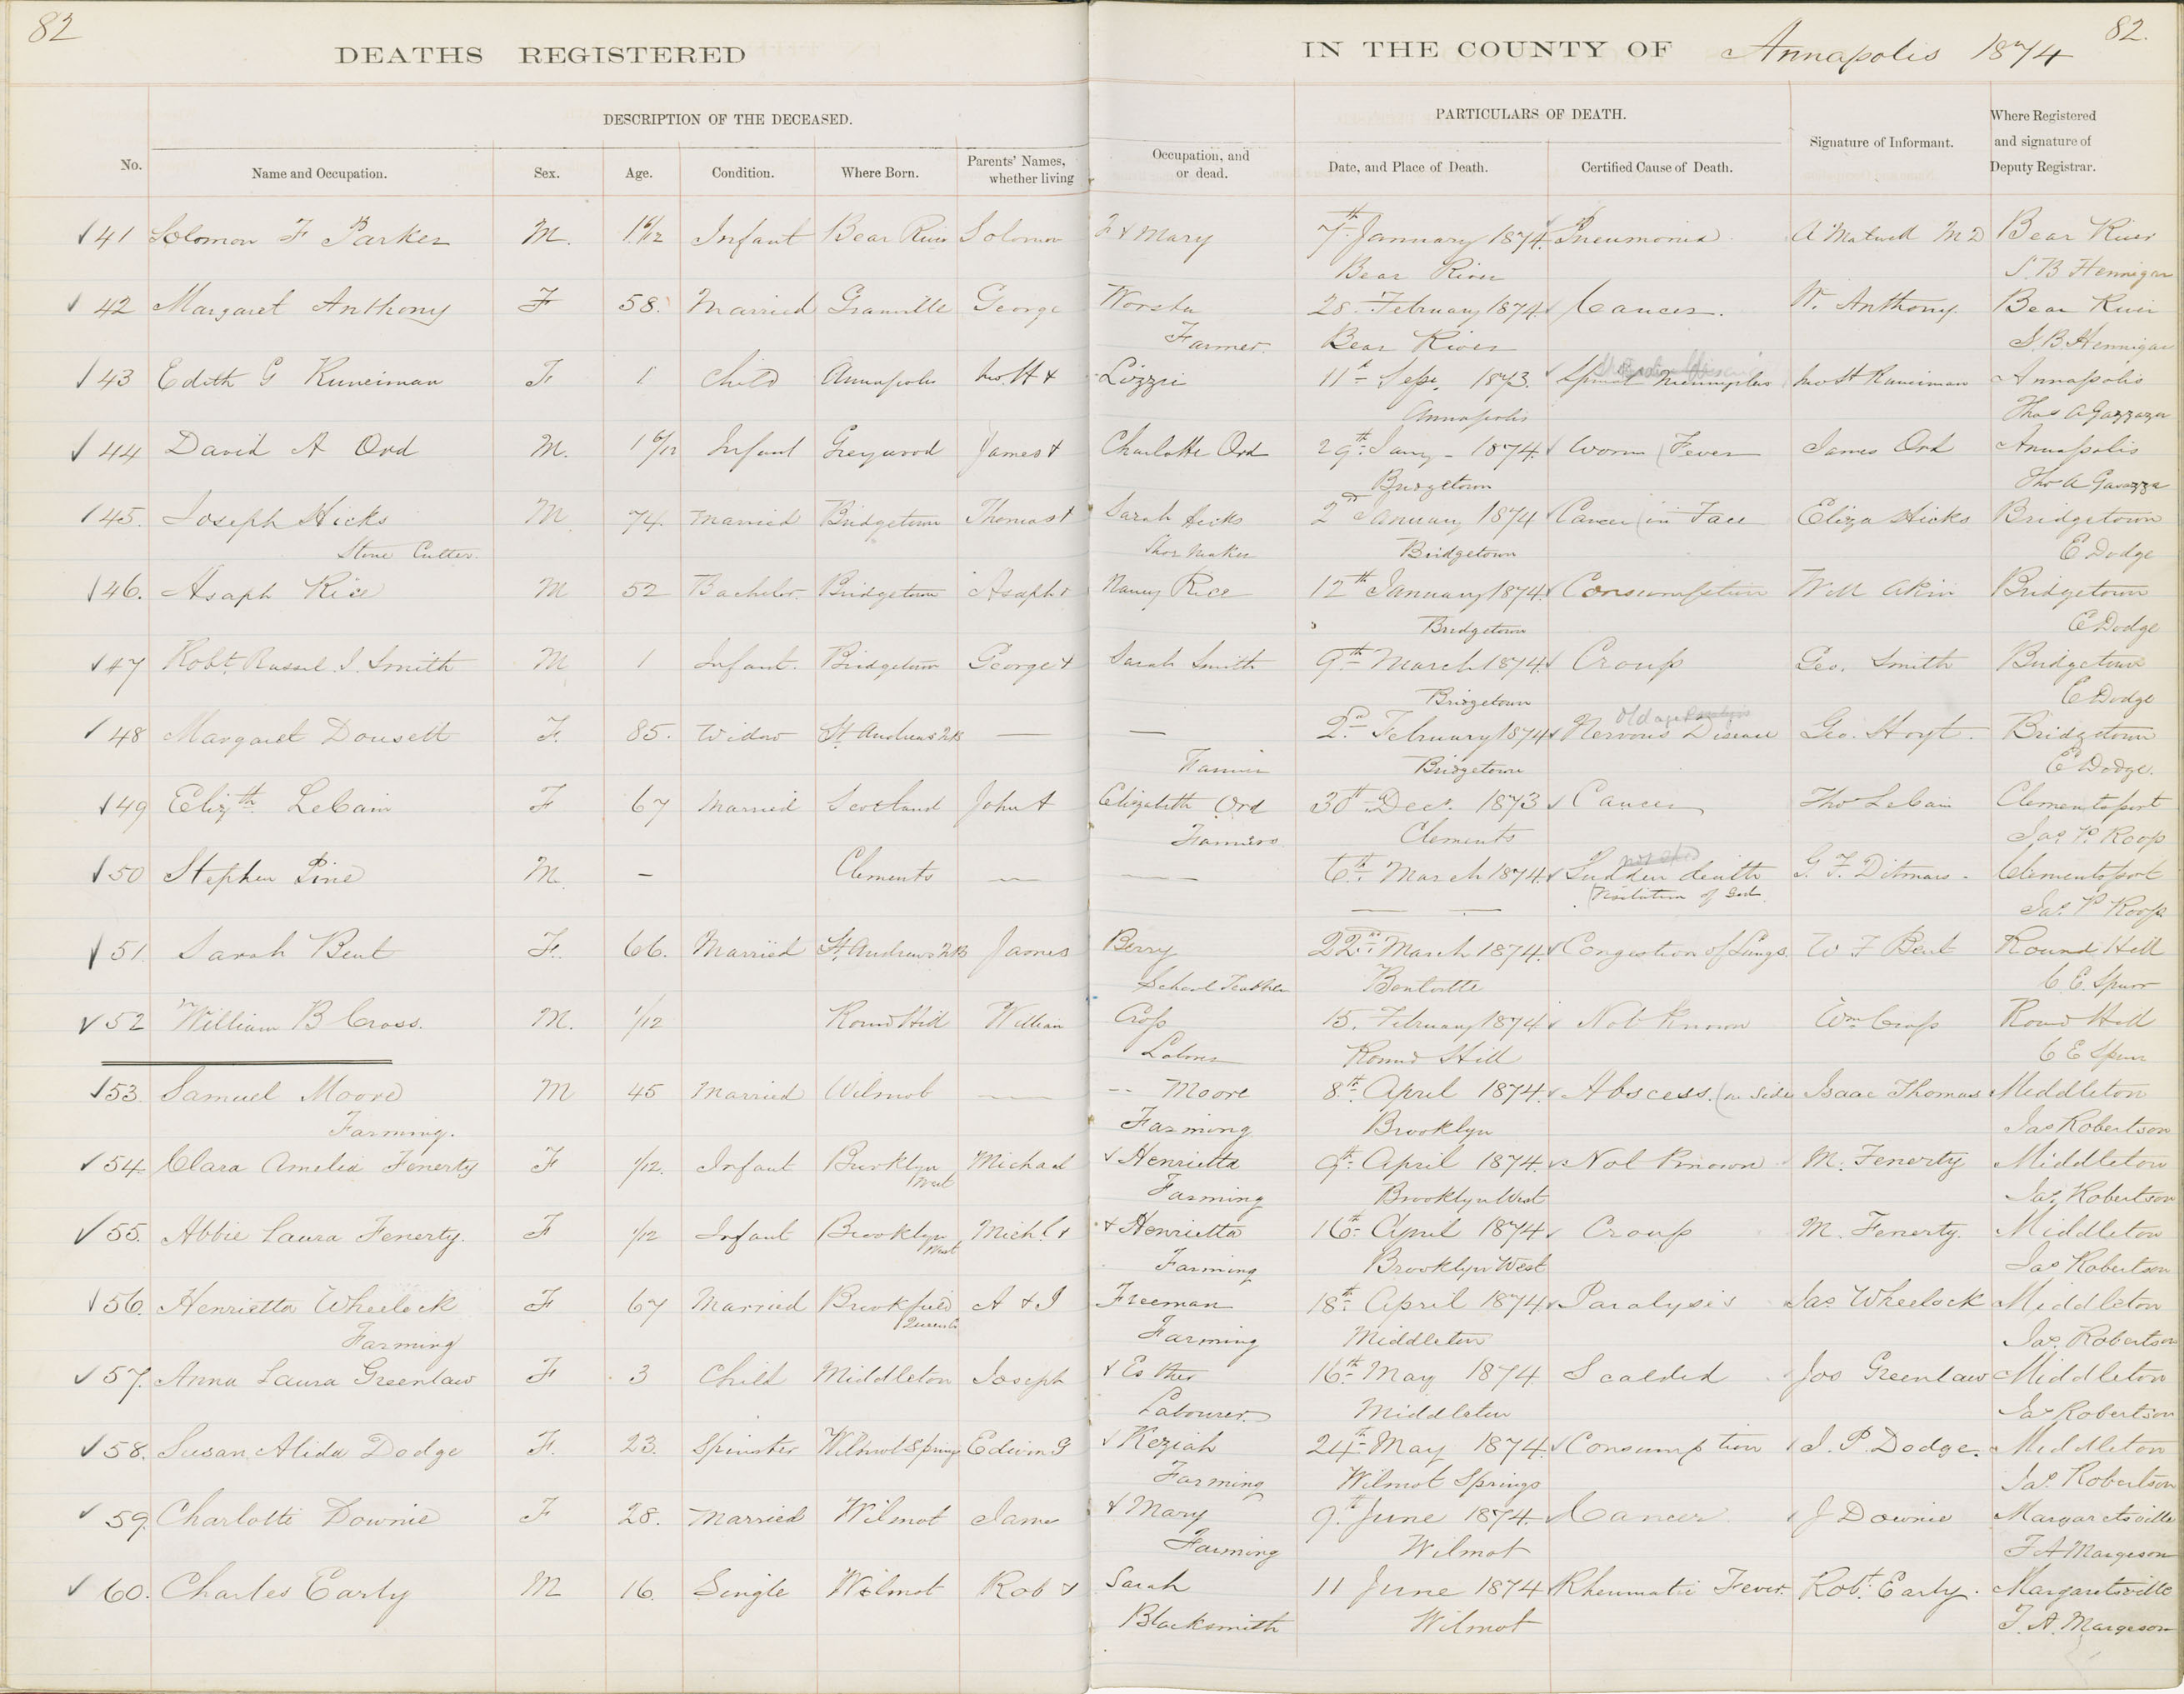 82
82.
DEATHS REGISTERED IN THE COUNTY OF Annapolis 1874
DESCRIPTION OF THE DECEASED. PARTICULARS OF DEATH.
No. Name and Occupation. Sex. Age. Condition. Where Born. Parents' Names, whether living Occupation, and or dead. Date, and Place of Death. Certified Cause of Death. Signature of Informant. Where Registered and signature of Deputy Registrar.
41 Solomon F Parker M. Infant Bear River Solomon F & Mary 7th January 1874. Pneumonia M D Bear River
Bear River Hennigar
42 Margaret Anthony F 58. Married Granville George Worster 28 February 1874 Cancer. W. Anthony. Bear River
Farmer. Bear River Hennigar
43 Edith G Runciman F 1 Child Annapolis & Lizzie 11th Sept. 1873. Spinal Runciman Annapolis
Annapolis Thos A
44 David A Ord M. 1 6/12 Infant Greywood James & Charlotte Ord 29th Jany - 1874. Worm Fever James Ord Annapolis
Bridgetown Tho A
45. Joseph Hicks M 74 Married Bridgetown Thomas & Sarah Hicks 2nd January 1874 Cancer in Face Eliza Hicks Bridgetown
Stone Cutter. Shoe Maker Bridgetown E Dodge
46. Asaph Rice M 52 Bachelor. Bridgetown Asaph & Nancy Rice 12th January 1874. Consumption Will Akin Bridgetown
Bridgetown E Dodge
47 Robt. Russel J. Smith M 1 Infant. Bridgetown George & Sarah Smith 9th March 1874. Croup Geo. Smith Bridgetown
Bridgetown E Dodge
Old age
48 Margaret Dousett F. 85. Widow St. Andrews NB — — 2nd February 1874 Nervous Disease Geo. Hoyt. Bridgetown
Farmer Bridgetown E Dodge.
49 Elizth. LeCain F 67 Married Scotland John & Elizabeth Ord 30th Decr. 1873 Cancer Tho LeCain Clementsport
Farmers Clements Jas P. Roop
50 Stephen Pine M. — Clements — — 6th March 1874. Sudden death G. F. Ditmars - Clementsport
— — (Visitation of God. Jas. P Roop
51 Sarah Bent F. 66. Married St. Andrews NB James Berry 22nd March 1874. Congestion of Lungs. W F Bent Round Hill
School Teacher C. E. Spurr
52 William B Cross. M. 1/12 Round Hill William Cross 15. February 1874 Not Known Wm Cross Round Hill
Labour Round Hill C E Spurr
53. Samuel Moore M 45 Married Wilmot — -- Moore 8th April 1874. Abscess. (in side Isaac Thomas Middleton
Farming. Farming Brooklyn Jas Robertson
54. Clara Amelia Fenerty F 1/12. Infant Brooklyn West Michael & Henrietta 9th April 1874. Not Known M. Fenerty Middleton
Farming Brooklyn West Jas Robertson
55. Abbie Laura Fenerty. F 1/12 Infant Brooklyn West Michl & & Henrietta 16th April 1874 Croup M. Fenerty. Middleton
Farming Brooklyn West Jas Robertson
56. Henrietta Wheelock F 67 Married Brookfield Queens Co A & I Freeman 18th April 1874 Paralysis Jas Wheelock Middleton
Farming Farming Middleton Jas. Robertson
57. Anna Laura Greenlaw F 3 Child Middleton Joseph & Esther 16th May 1874 Scalded Jos Greenlaw Middleton
Labourer. Middleton Jas Robertson
58. Susan Alida Dodge F. 23. Spinster Wilmot Springs Edwin G & Keziah 24th May 1874. Consumption J. P. Dodge. Middleton
Farming Wilmot Springs Jas. Robertson
59. Charlotte Downie F 28. Married Wilmot James & Mary 9th June 1874. Cancer J Downie Margaretsville
Farming Wilmot F A Margeson
60. Charles Early M 16. Single Wilmot Rob & Sarah 11 June 1874 Rheumatic Fever. Robt. Early. Margaretsville
Blacksmith Wilmot F. A. Margeson